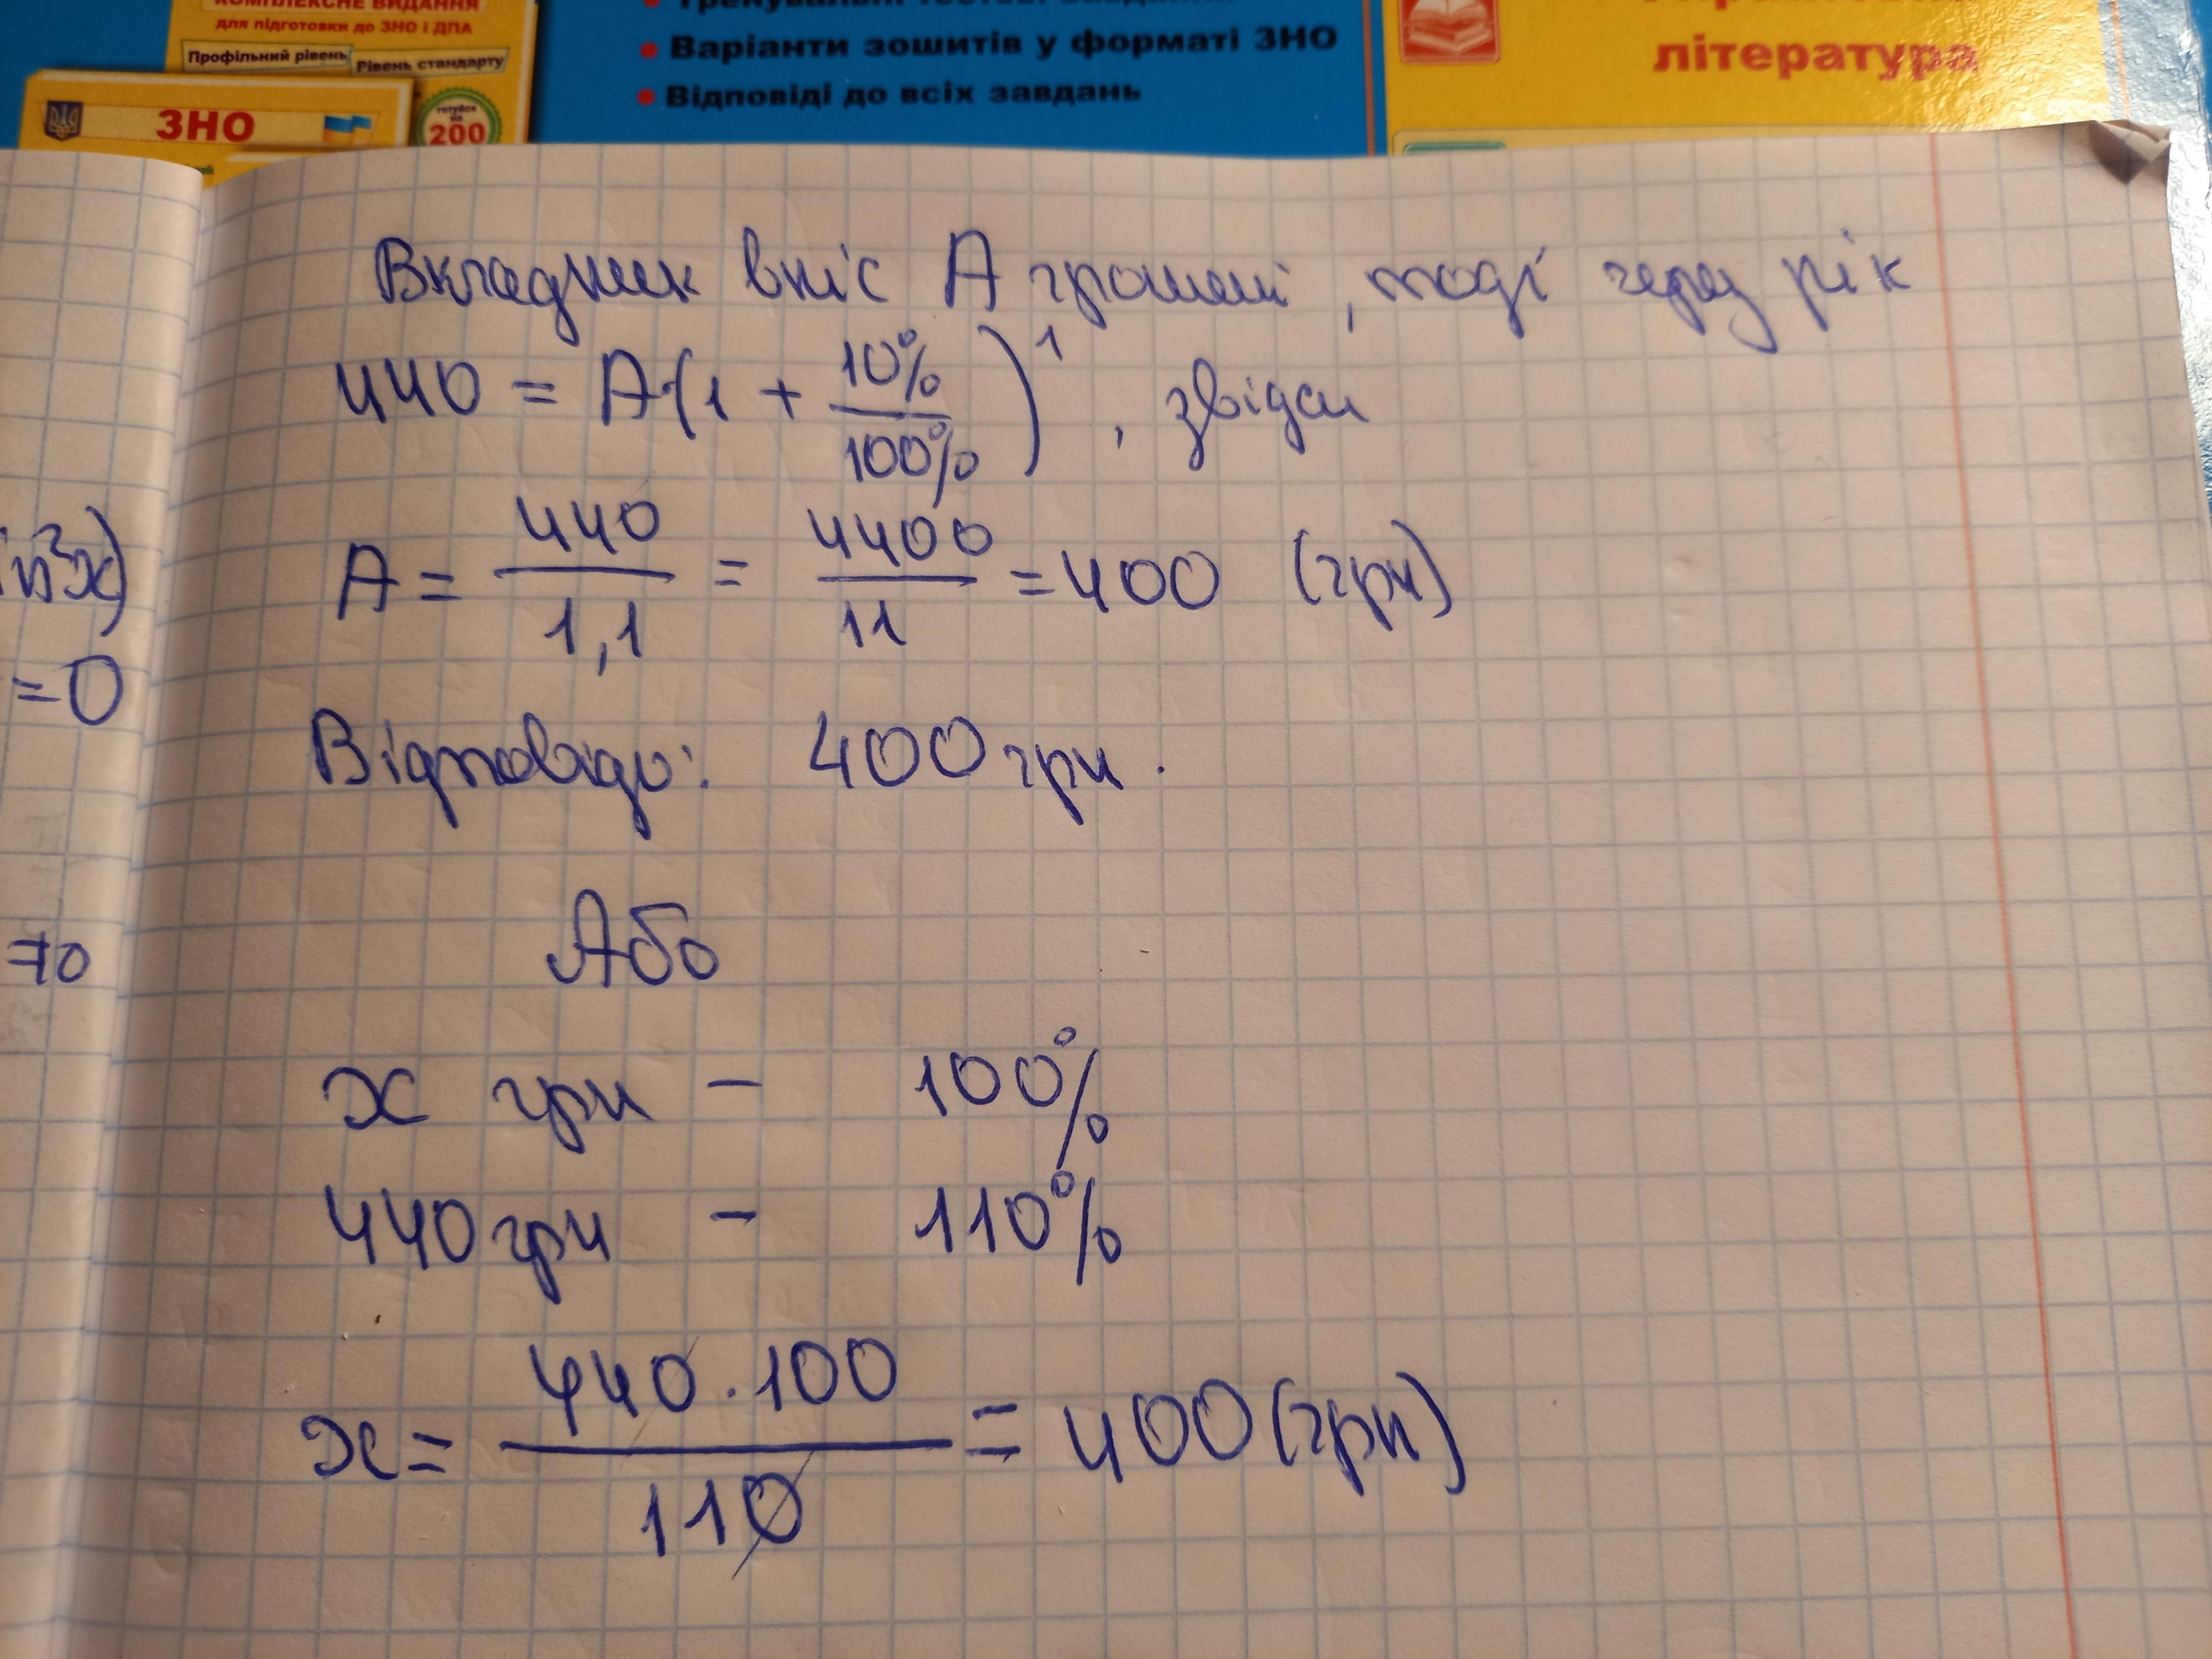 КОМПЛЕКСНЕ ВИДАННЯ
для підготовки до ЗНО і ДПА
Профільний рівень
Рівень стандарту
ЗНО
готуйся
на
200
Тренувальні тестові завдання
• Варіанти зошитів у форматі ЗНО
• Відповіді до всіх завдань
література
Вкладник вніс А грошей, тоді через рік
440 = А·(1 + 10%/100%)^1, звідси
А = 440/1,1 = 4400/11 = 400 (грн)
Відповідь: 400 грн.
Або
x грн – 100%
440 грн – 110%
x = 440·100/110 = 400 (грн)
=0
=0